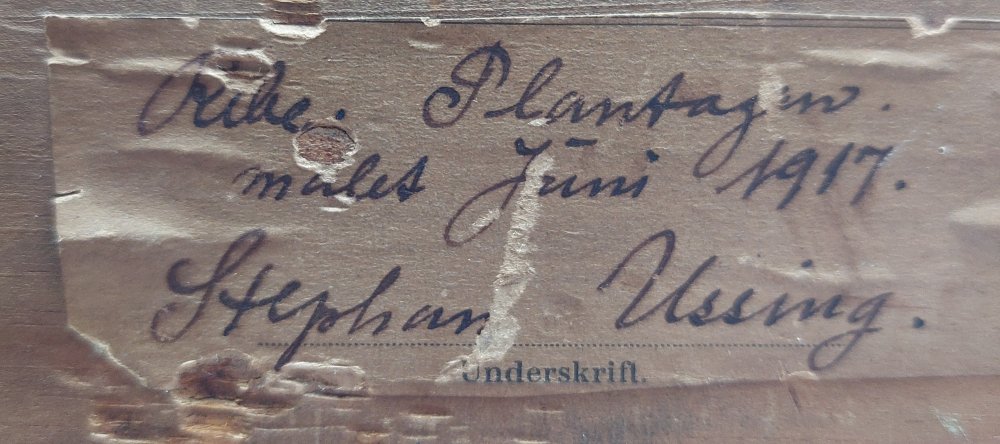 Ribe. Plantagen.
malet Juni 1917.
Stephan Ussing.
Underskrift.